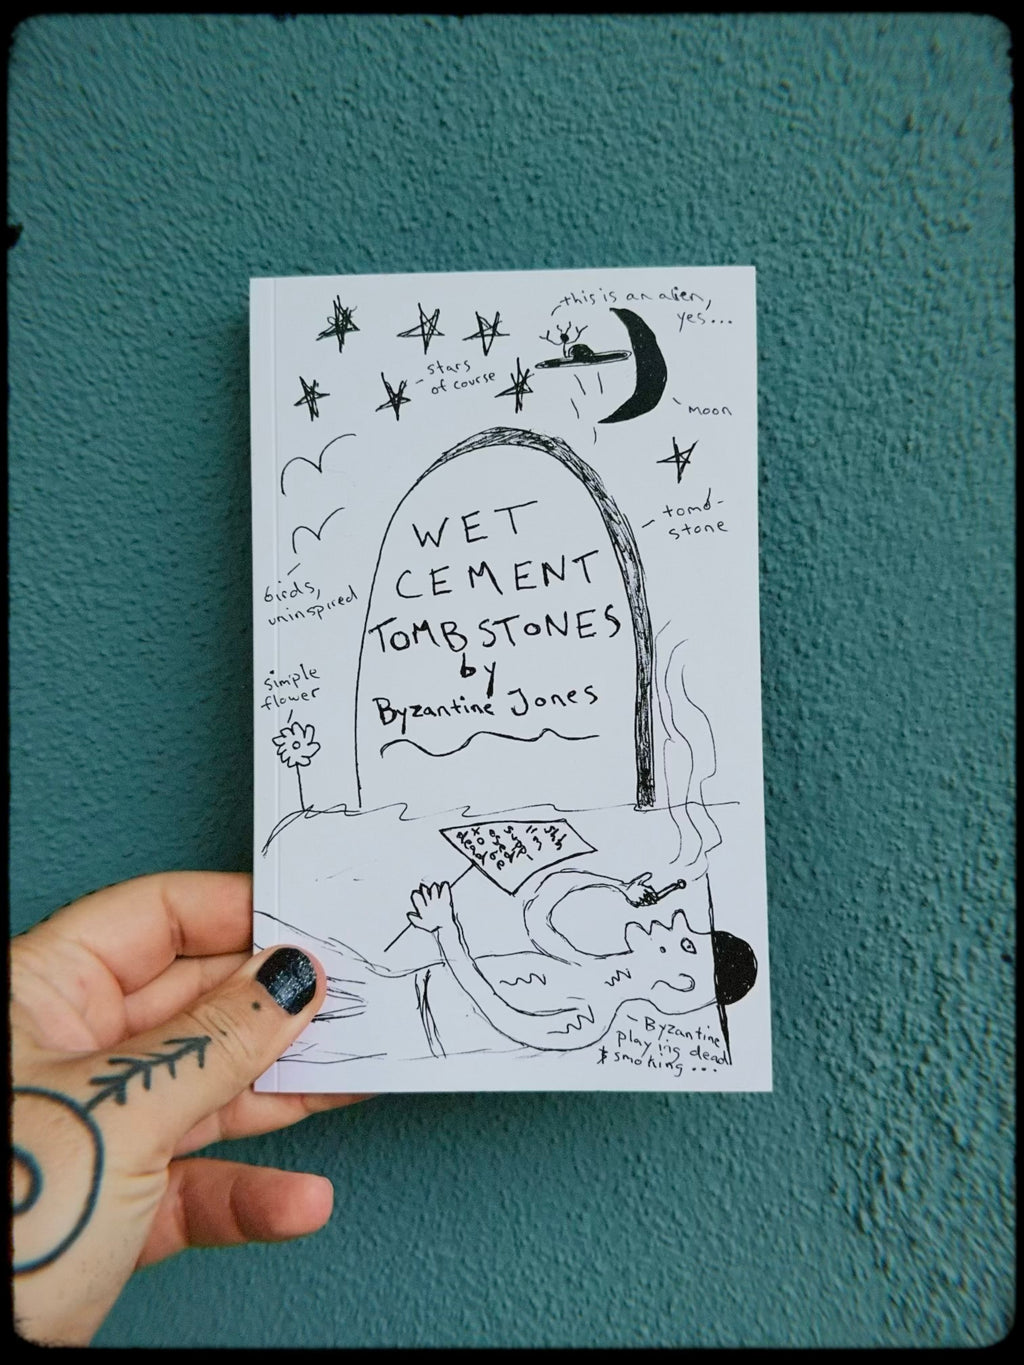 this is an alien,
yes...
stars
of course
moon
tomb-
stone
WET
CEMENT
TOMBSTONES
by
Byzantine Jones
birds,
uninspired
simple
flower
shh
I'm
supp-
osed
to be
dead
- Byzantine
playing dead
& smoking...